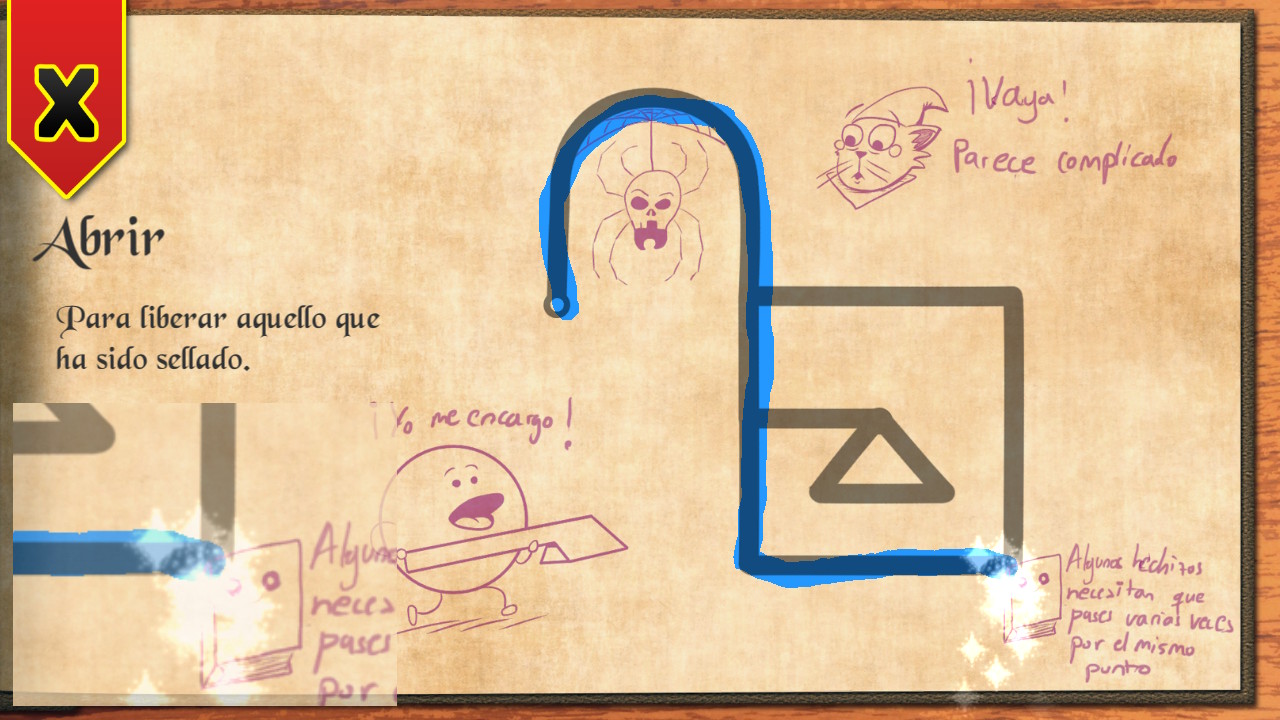 X
Abrir
Para liberar aquello que
ha sido sellado.
¡Vaya!
Parece complicado
¡Yo me encargo!
Algunos hechizos
necesitan que
pases varias veces
por el mismo
punto
Alguno
neces
pases
por